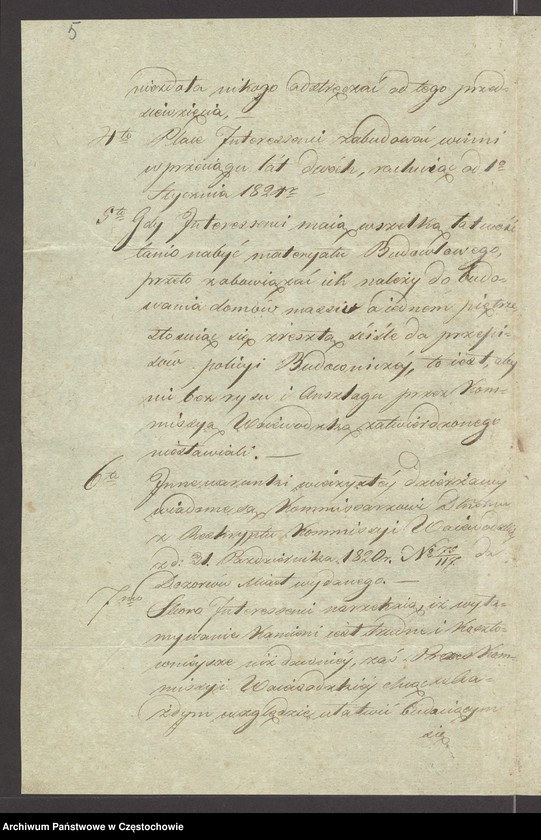 5
niezdoła nikogo odstręczać od tego przed-
sięwzięcia, —
4to Place Interessenci zabudować winni
w przeciągu lat dwóch, rachuiąc od 1o
Stycznia 1821 r. —
5to Gdy Interessenci maią wszelką łatwość
tanio nabyć materyału Budowlowego,
przeto zobowiązać ich należy do budo-
wania domów massiv o iednem piętrze
stosuiąc się zresztą ściśle do przepi-
sów policyi Budowniczéj, to iest, aby
nic bez rysu i Anszlagu przez Kom-
missyą Woiewodzką zatwierdzonego
niestawiali. —
6to Inne warunki wieczystéj dzierżawy
wiadome są Kommissarzowi
z Reskryptu Kommissyi Woiewodzkiéj
z d: 21. Października 1820 r. No do
Dozorców Miast wydanego. —
7mo Skoro Interessenci narzekaią, iż wyła-
mywanie Kamieni iest trudne i Koszto-
wnieysze niż dawniéj, zaś Kom-
missyi Woiewodzkiéj w ka-
żdym względzie ułatwić buduiącym
się
Archiwum Państwowe w Częstochowie